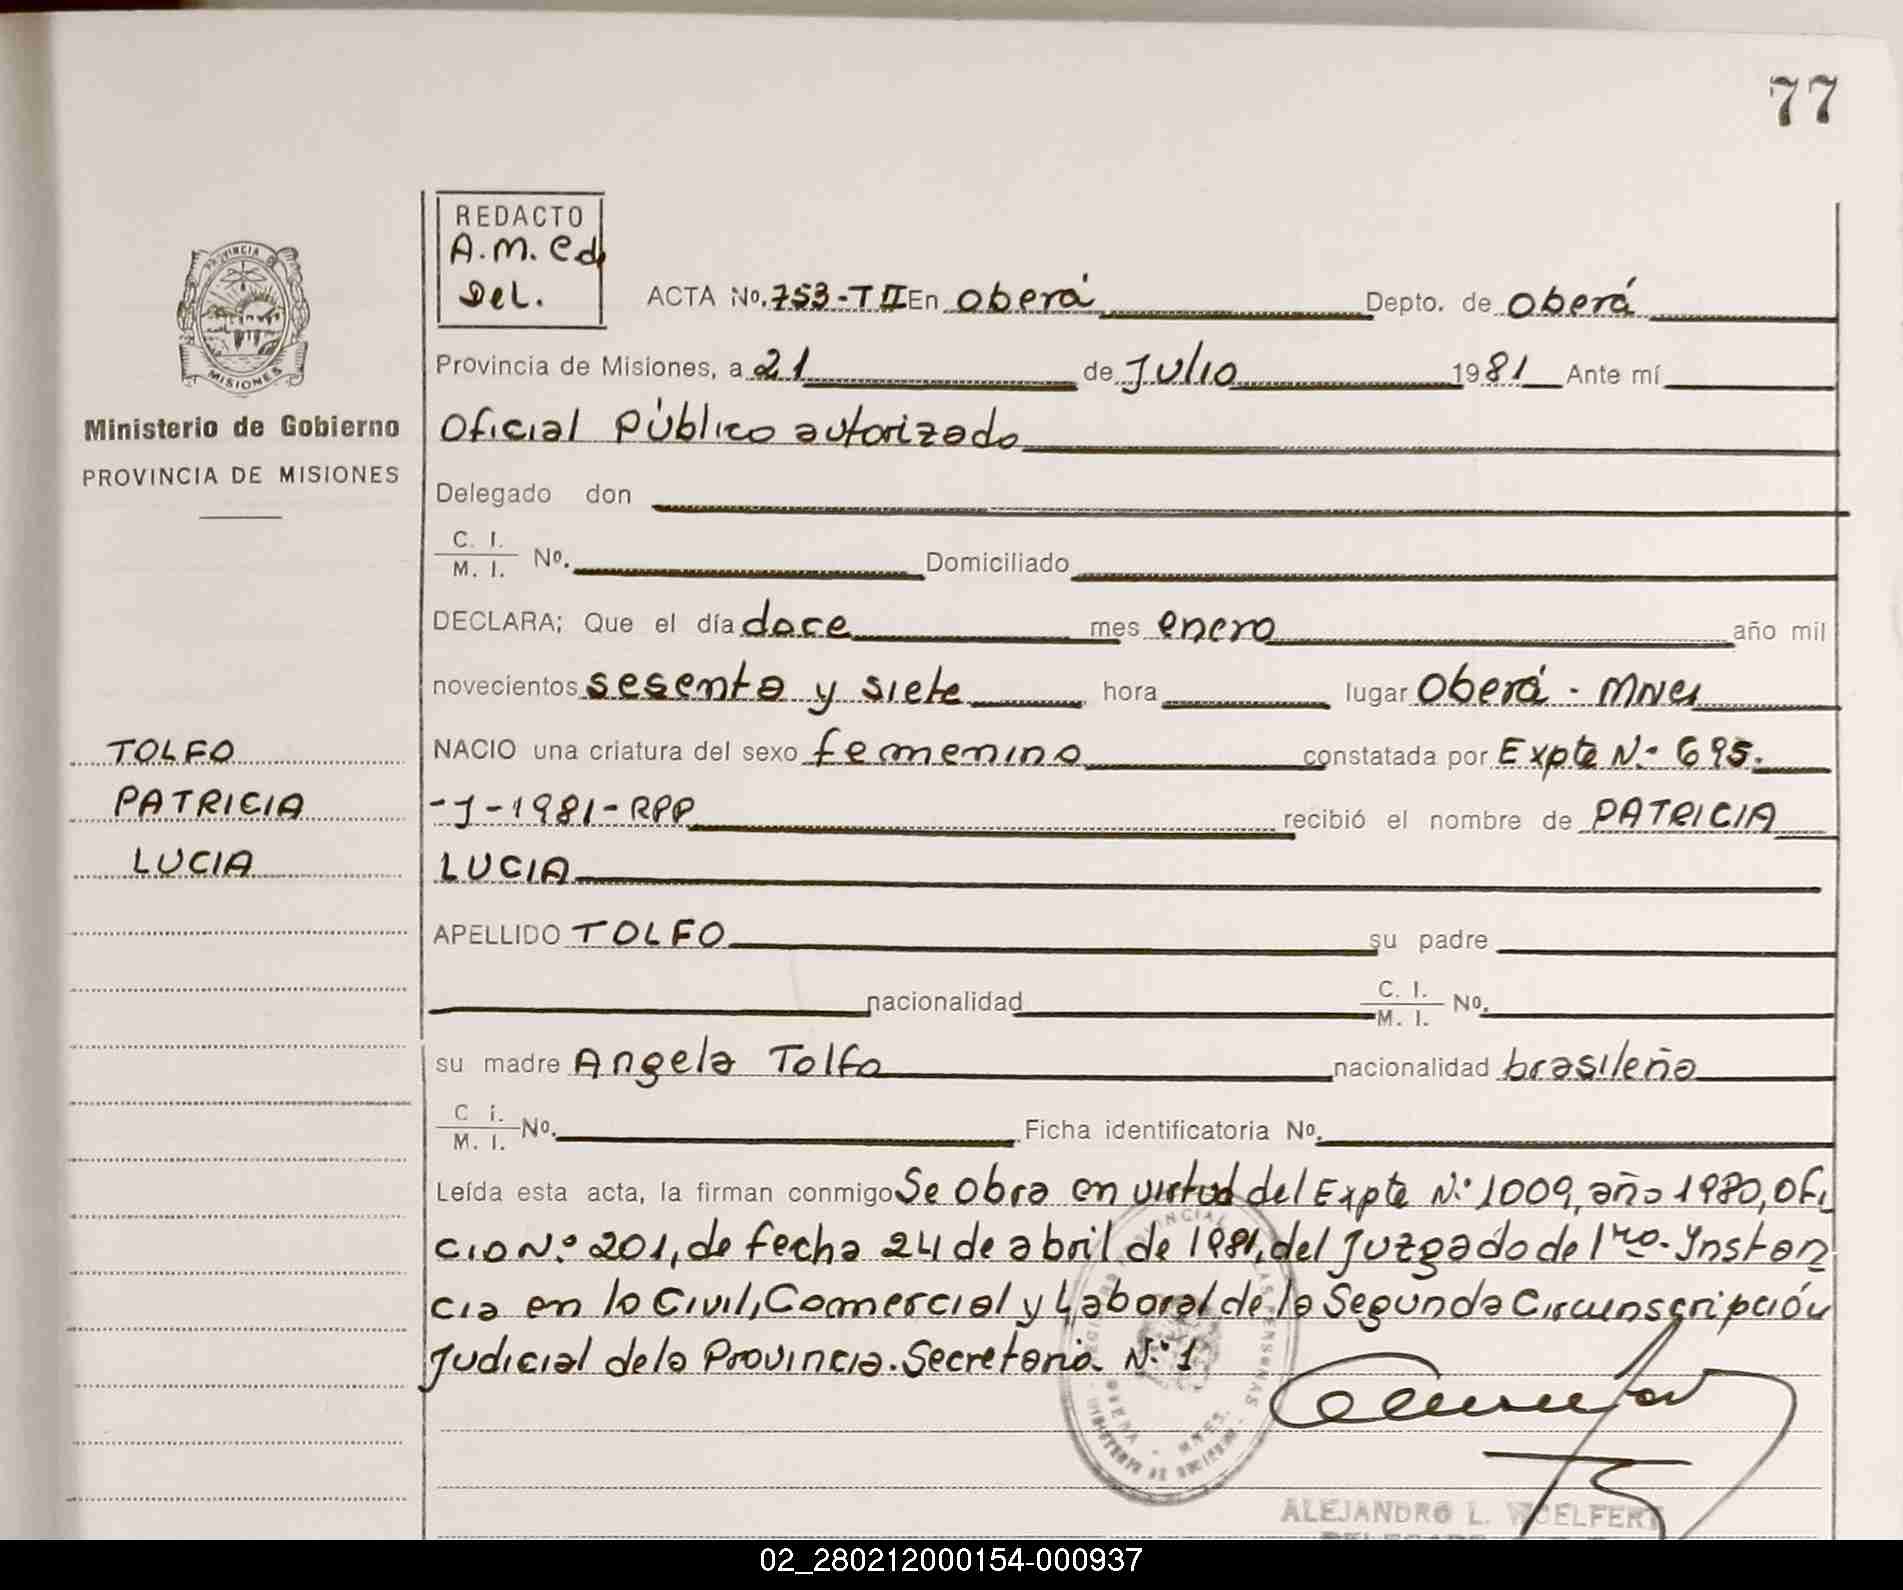 77
REDACTO
A.M. Cd
Del.
PROVINCIA DE
MISIONES
Ministerio de Gobierno
PROVINCIA DE MISIONES
TOLFO
PATRICIA
LUCIA
ACTA No. 753-T II En Oberá Depto. de Oberá
Provincia de Misiones, a 21 de Julio 1981 Ante mí
Oficial Público autorizado
Delegado don
C. I.
M. I. No. Domiciliado
DECLARA; Que el día doce mes enero año mil
novecientos sesenta y siete hora lugar Oberá - Mnes
NACIO una criatura del sexo femenino constatada por Expte N.º 695.
-J-1981-RPP recibió el nombre de PATRICIA
LUCIA
APELLIDO TOLFO su padre
nacionalidad C. I.
M. I. No.
su madre Angela Tolfo nacionalidad brasileña
C i.
M. I. No. Ficha identificatoria No.
Leída esta acta, la firman conmigo Se obra en virtud del Expte N.º 1009, año 1980, Ofi
cio N.º 201, de fecha 24 de abril de 1981, del Juzgado de 1ra. Instan
cia en lo Civil, Comercial y Laboral de la Segunda Circunscripción
Judicial de la Provincia. Secretaria N.º 1
ALEJANDRO L. WOELFERT
02_280212000154-000937